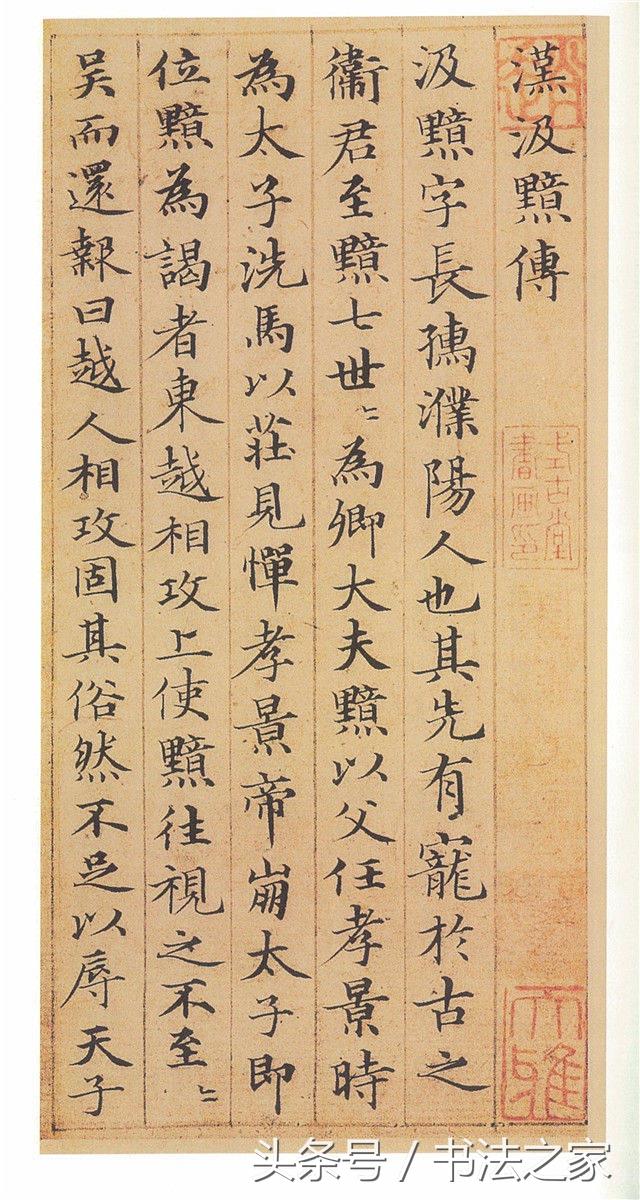 漢汲黯傳
汲黯字長孺濮陽人也其先有寵於古之
衞君至黯七世〻為卿大夫黯以父任孝景時
為太子洗馬以莊見憚孝景帝崩太子即
位黯為謁者東越相攻上使黯往視之不至〻
吳而還報曰越人相攻固其俗然不足以辱天子
大雅
头条号 / 书法之家